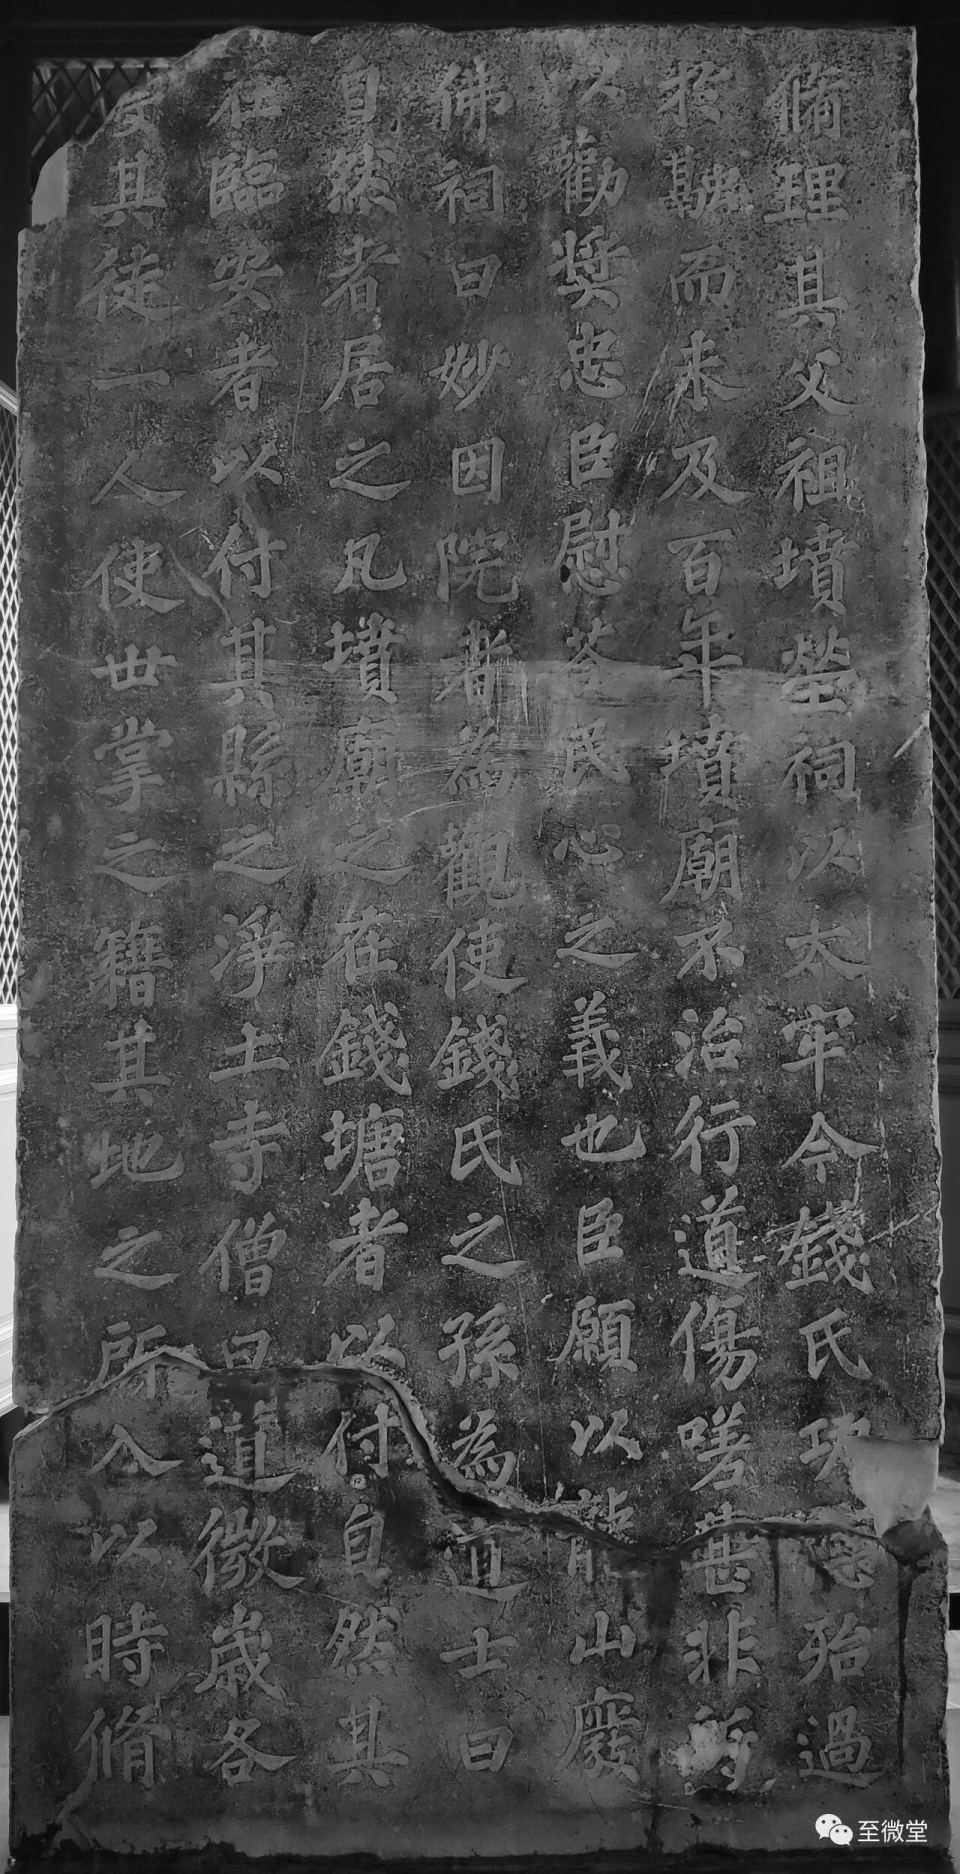 脩理其父祖墳塋祠以太牢今錢氏功德殆過
於融而未及百年墳廟不治行道傷嗟甚非所
以勸奬忠臣慰荅民心之義也臣願以龍山廢
佛祠曰妙因院者為觀使錢氏之孫為道士曰
自然者居之凡墳廟之在錢塘者以付自然其
在臨安者以付其縣之淨土寺僧曰道微歲各
度其徒一人使世掌之籍其地之所入以時脩
至微堂